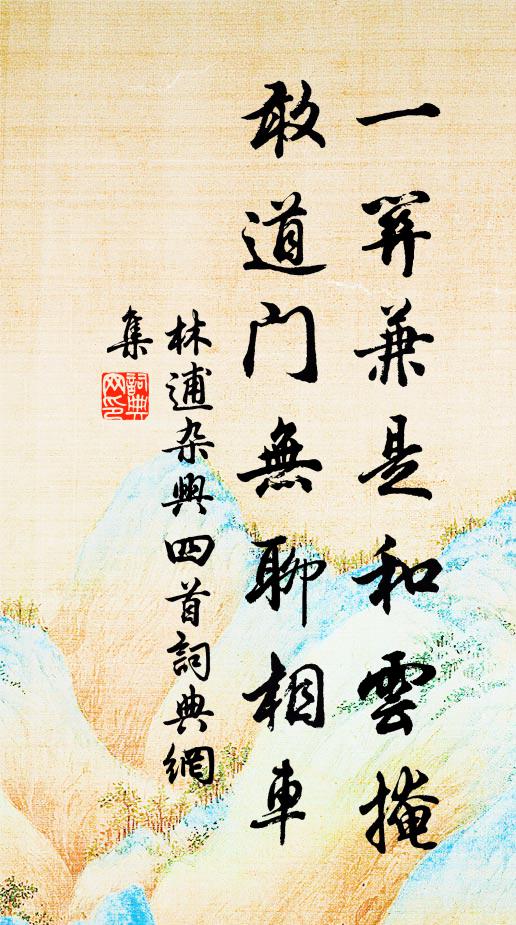 一關兼是和雲掩
敢道門無卿相車
林逋杂興四首詞典網
集
詞典
网印